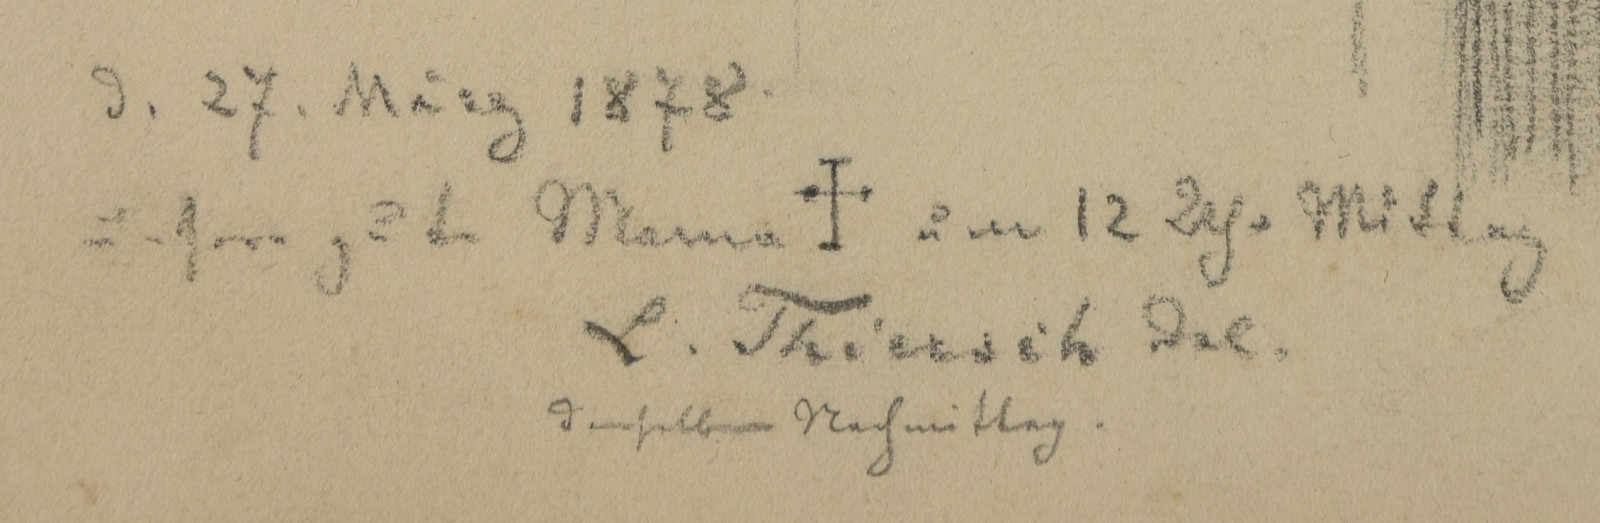 d. 27. März 1878.
unsere gute Mama † um 12 Uhr Mittag
L. Thiersch del.
denselben Nachmittag.